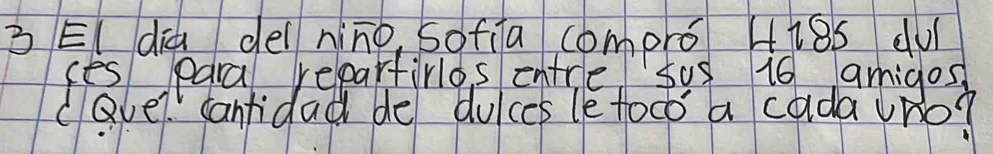 3 El día del niño, Sofía compró 4185 dul
ces para repartirlos entre sus 16 amigos.
¿Que cantidad de dulces le tocó a cada uno?